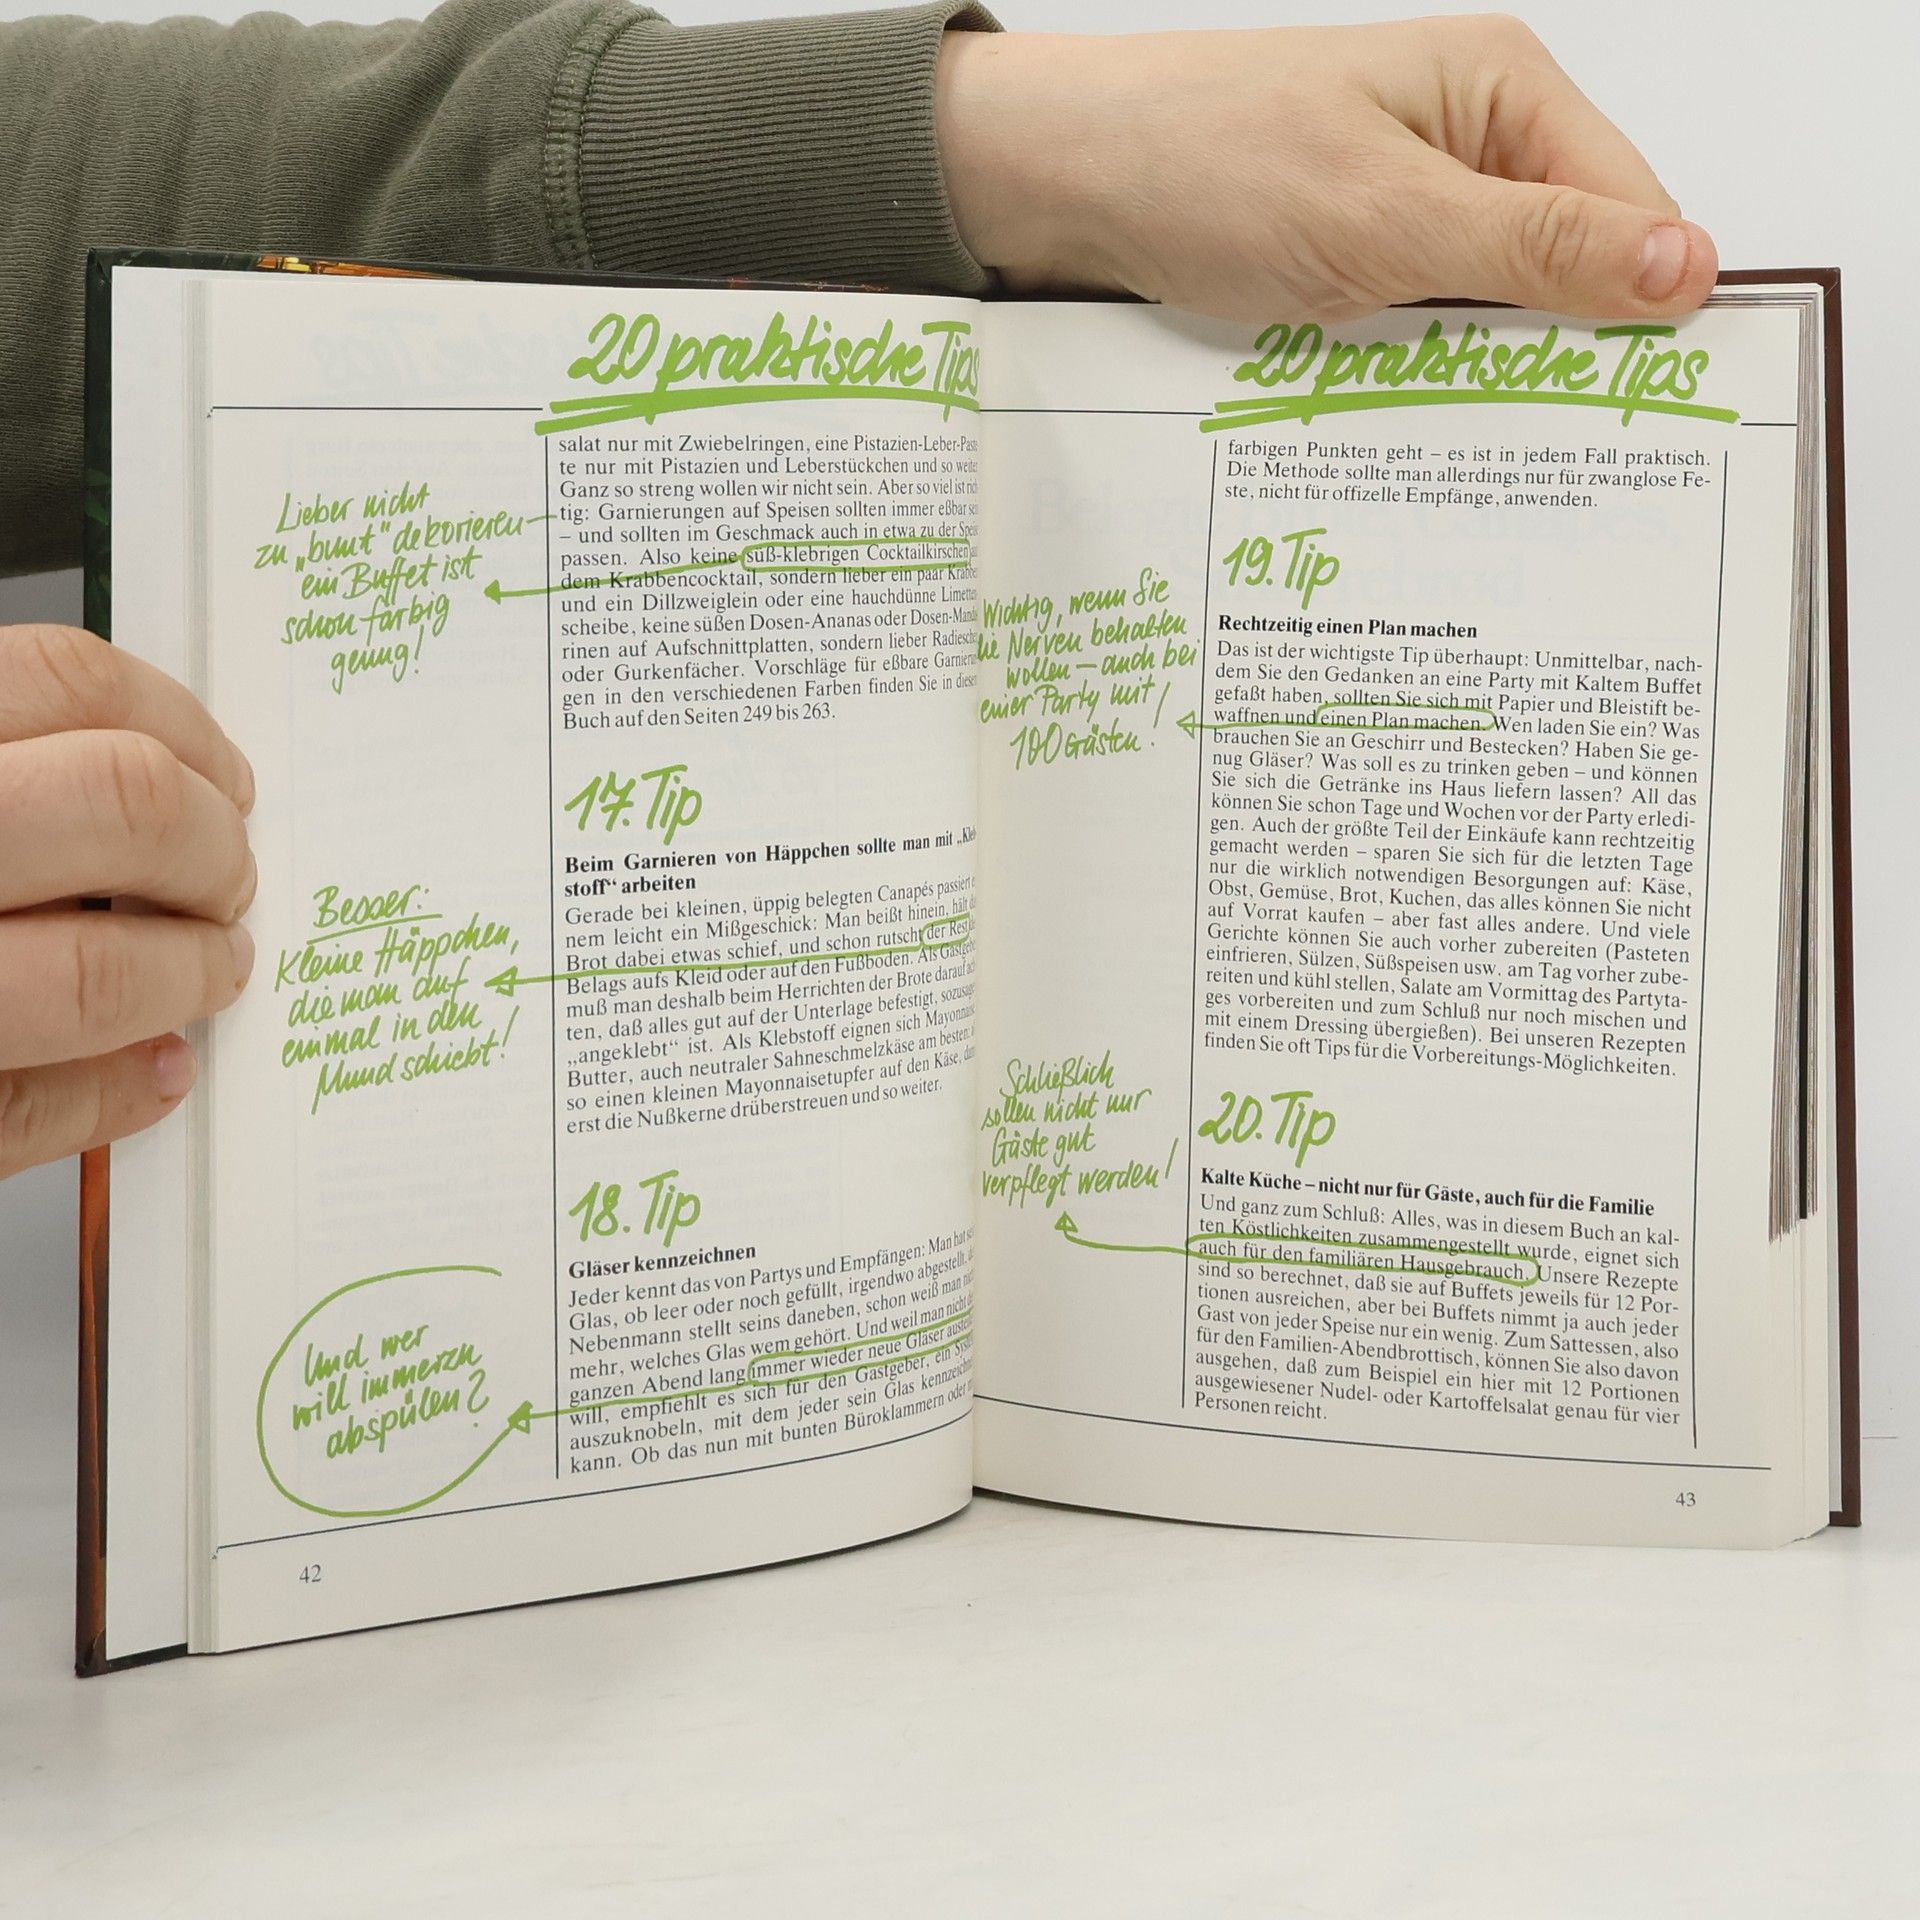 20 praktische Tips
salat nur mit Zwiebelringen, eine Pistazien-Leber-Pas-
te nur mit Pistazien und Leberstückchen und so weiter
Ganz so streng wollen wir nicht sein. Aber so viel ist rich-
tig: Garnierungen auf Speisen sollten immer eßbar sein
– und sollten im Geschmack auch in etwa zu der Speise
passen. Also keine süß-klebrigen Cocktailkirschen
dem Krabbencocktail, sondern lieber ein paar Krabben
und ein Dillzweiglein oder eine hauchdünne Limetten-
scheibe, keine süßen Dosen-Ananas oder Dosen-Manda-
rinen auf Aufschnittplatten, sondern lieber Radieschen
oder Gurkenfächer. Vorschläge für eßbare Garnierun-
gen in den verschiedenen Farben finden Sie in diesem
Buch auf den Seiten 249 bis 263.
Lieber nicht
zu „bunt“ dekorieren
ein Buffet ist
schon farbig
genug!
17. Tip
Beim Garnieren von Häppchen sollte man mit „Kleb-
stoff“ arbeiten
Gerade bei kleinen, üppig belegten Canapés passiert
nem leicht ein Mißgeschick: Man beißt hinein, hält
Brot dabei etwas schief, und schon rutscht der Rest
Belags aufs Kleid oder auf den Fußboden. Als Gastgeber
muß man deshalb beim Herrichten der Brote darauf ach-
ten, daß alles gut auf der Unterlage befestigt, sozusagen
„angeklebt“ ist. Als Klebstoff eignen sich Mayonnaise
Butter, auch neutraler Sahneschmelzkäse am besten:
so einen kleinen Mayonnaisetupfer auf den Käse, dann
erst die Nußkerne drüberstreuen und so weiter.
Besser:
Kleine Häppchen,
die man auf
einmal in den
Mund schiebt!
18. Tip
Gläser kennzeichnen
Jeder kennt das von Partys und Empfängen: Man hat sein
Glas, ob leer oder noch gefüllt, irgendwo abgestellt,
Nebenmann stellt seins daneben, schon weiß man nicht
mehr, welches Glas wem gehört. Und weil man nicht
ganzen Abend lang immer wieder neue Gläser austeilen
will, empfiehlt es sich für den Gastgeber, ein System
auszuknobeln, mit dem jeder sein Glas kennzeichnen
kann. Ob das nun mit bunten Büroklammern oder
Und wer
will immerzu
abspülen?
42
20 praktische Tips
farbigen Punkten geht – es ist in jedem Fall praktisch.
Die Methode sollte man allerdings nur für zwanglose Fe-
ste, nicht für offizelle Empfänge, anwenden.
19. Tip
Rechtzeitig einen Plan machen
Das ist der wichtigste Tip überhaupt: Unmittelbar, nach-
dem Sie den Gedanken an eine Party mit Kaltem Buffet
gefaßt haben, sollten Sie sich mit Papier und Bleistift be-
waffnen und einen Plan machen. Wen laden Sie ein? Was
brauchen Sie an Geschirr und Bestecken? Haben Sie ge-
nug Gläser? Was soll es zu trinken geben – und können
Sie sich die Getränke ins Haus liefern lassen? All das
können Sie schon Tage und Wochen vor der Party erledi-
gen. Auch der größte Teil der Einkäufe kann rechtzeitig
gemacht werden – sparen Sie sich für die letzten Tage
nur die wirklich notwendigen Besorgungen auf: Käse,
Obst, Gemüse, Brot, Kuchen, das alles können Sie nicht
auf Vorrat kaufen – aber fast alles andere. Und viele
Gerichte können Sie auch vorher zubereiten (Pasteten
einfrieren, Sülzen, Süßspeisen usw. am Tag vorher zube-
reiten und kühl stellen, Salate am Vormittag des Partyta-
ges vorbereiten und zum Schluß nur noch mischen und
mit einem Dressing übergießen). Bei unseren Rezepten
finden Sie oft Tips für die Vorbereitungs-Möglichkeiten.
Wichtig, wenn Sie
die Nerven behalten
wollen – auch bei
einer Party mit
100 Gästen!
20. Tip
Kalte Küche – nicht nur für Gäste, auch für die Familie
Und ganz zum Schluß: Alles, was in diesem Buch an kal-
ten Köstlichkeiten zusammengestellt wurde, eignet sich
auch für den familiären Hausgebrauch. Unsere Rezepte
sind so berechnet, daß sie auf Buffets jeweils für 12 Por-
tionen ausreichen, aber bei Buffets nimmt ja auch jeder
Gast von jeder Speise nur ein wenig. Zum Sattessen, also
für den Familien-Abendbrottisch, können Sie also davon
ausgehen, daß zum Beispiel ein hier mit 12 Portionen
ausgewiesener Nudel- oder Kartoffelsalat genau für vier
Personen reicht.
Schließlich
sollen nicht nur
Gäste gut
verpflegt werden!
43